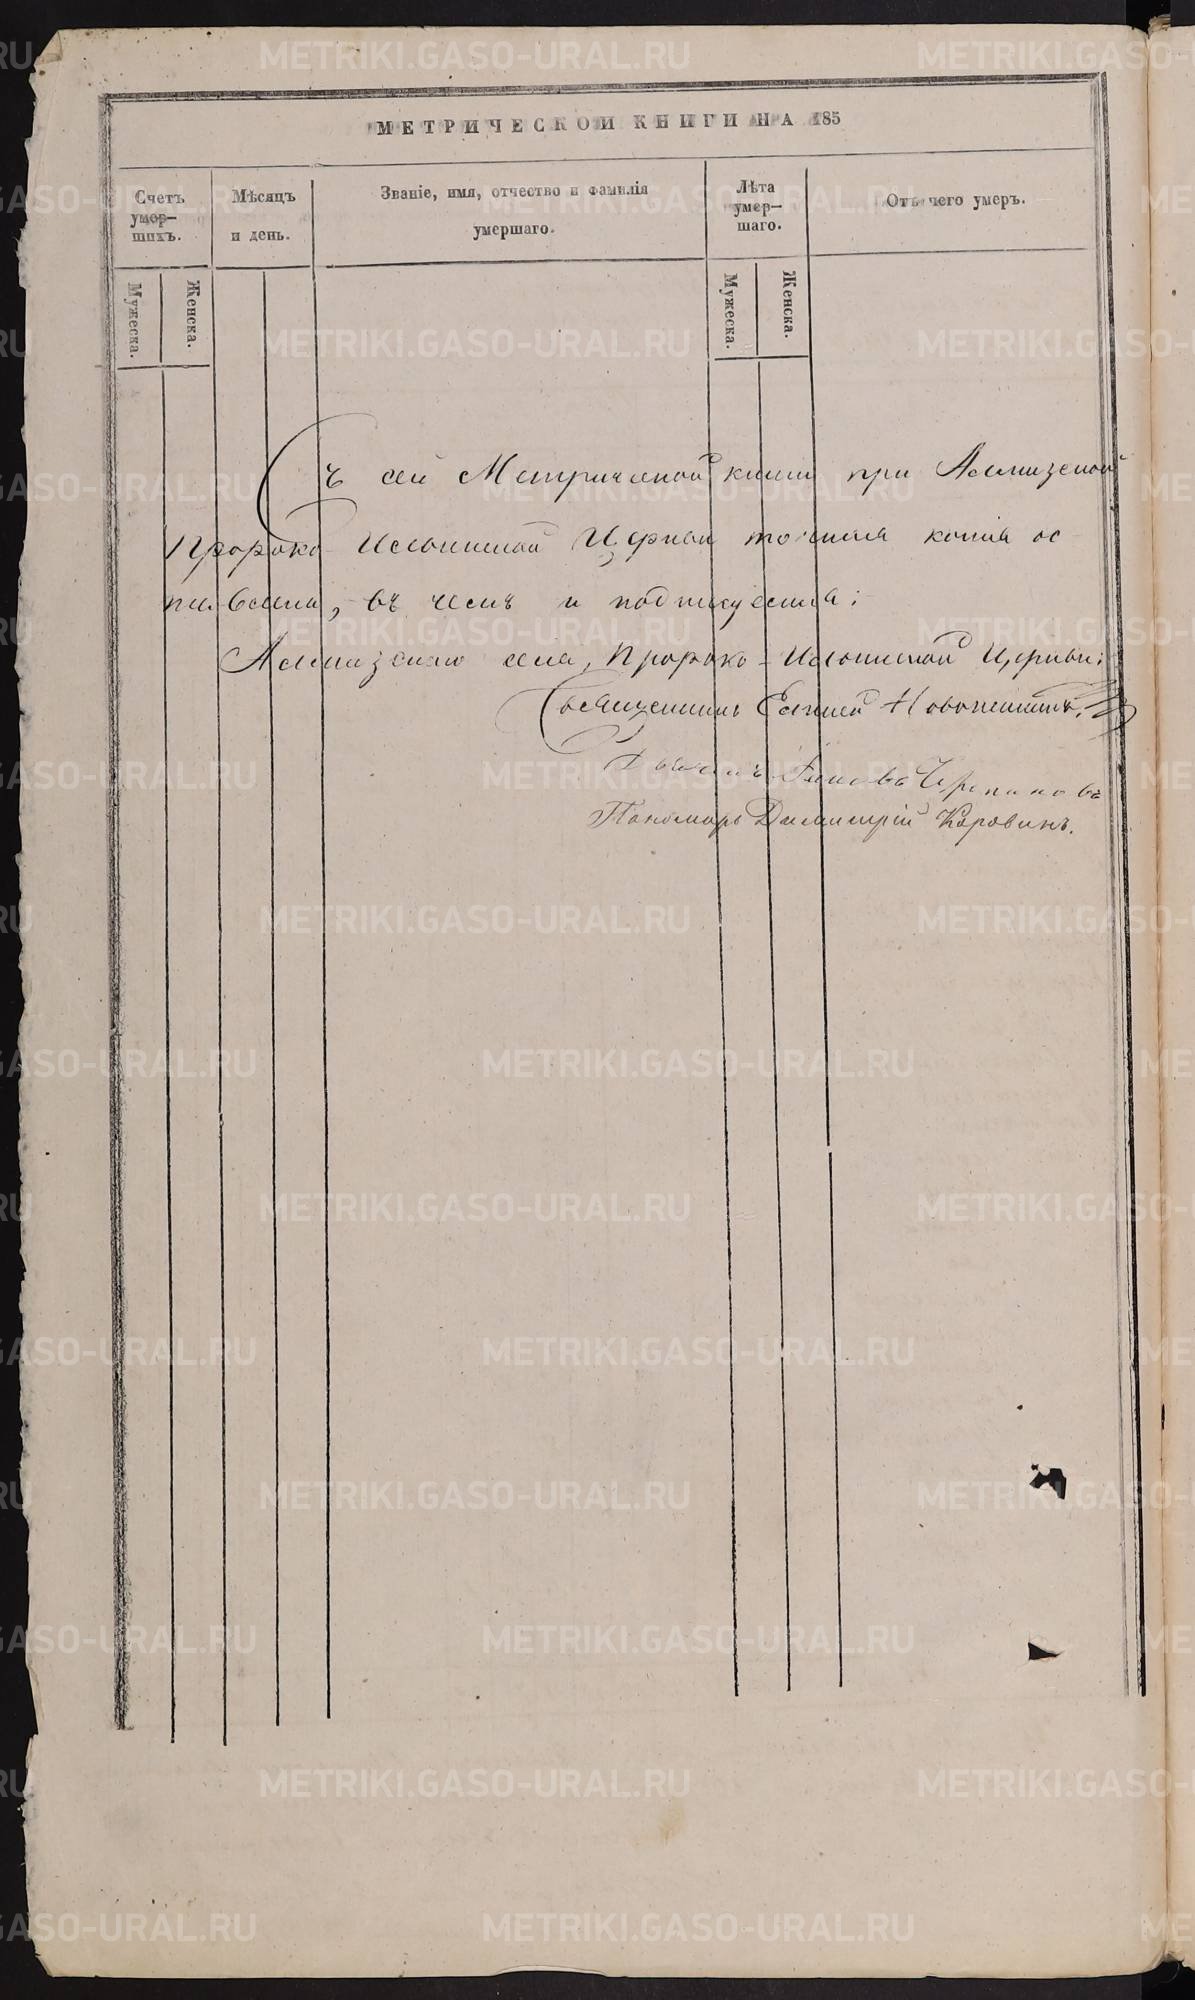 МЕТРИЧЕСКОЙ КНИГИ НА 185
Счетъ умер-
шихъ.
Мѣсяцъ
и день.
Званіе, имя, отчество и фамилія
умершаго.
Лѣта
умер-
шаго.
Отъ чего умеръ.
Мужеска.
Женска.
Мужеска.
Женска.
Съ сей Метрической книги при
Пророко-Ильинской Церкви точная копія ос-
тавлена, въ чемъ и подписуемся:
села, Пророко-Ильинской Церкви:
Священникъ
Дьячекъ
Пономарь Димитрій Коровинъ.
METRIKI.GASO-URAL.RU